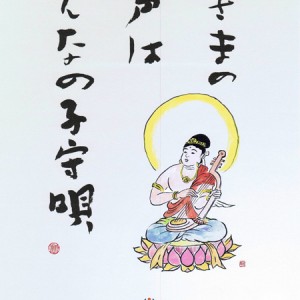 さまの
声は
んなの子守唄